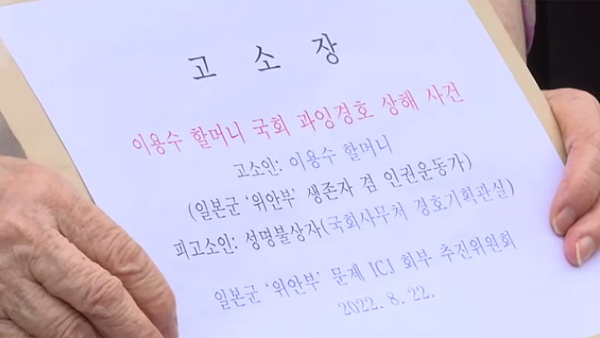 고 소 장
이용수 할머니 국회 과잉경호 상해 사건
고소인: 이용수 할머니
(일본군 '위안부' 생존자 겸 인권운동가)
피고소인: 성명불상자(국회사무처 경호기획관실)
일본군 '위안부' 문제 ICJ 회부 추진위원회
2022. 8. 22.